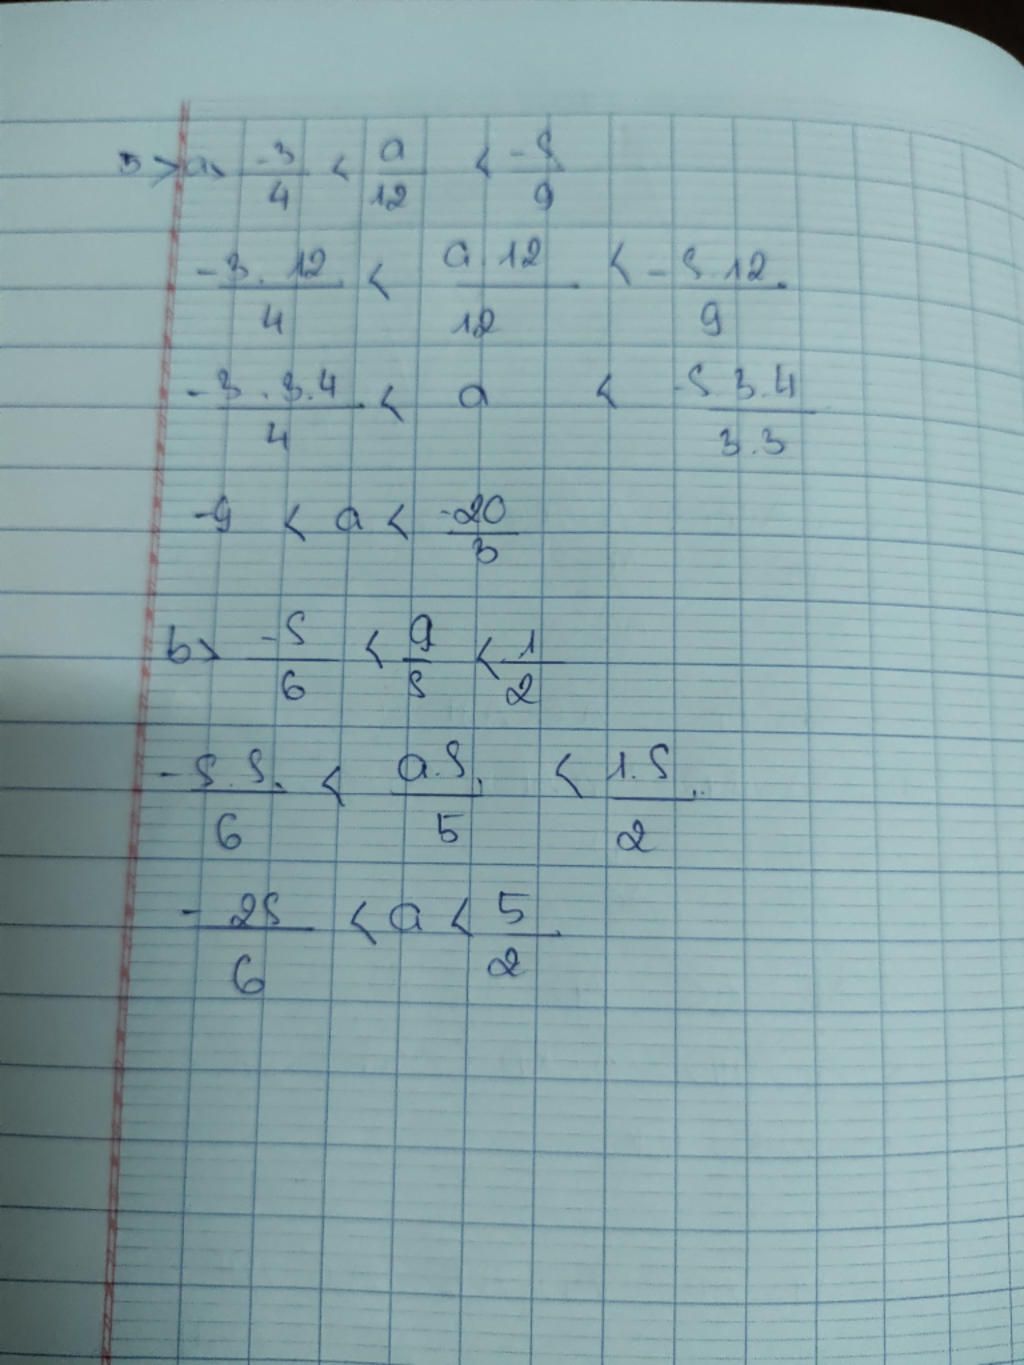 5> a> -3/4 < a/12 < -5/9
-3.12/4 < a.12/12 < -5.12/9
-3.3.4/4 < a < -5.3.4/3.3
-9 < a < -20/3
b> -5/6 < a/5 < 1/2
-5.5/6 < a.5/5 < 1.5/2
-25/6 < a < 5/2